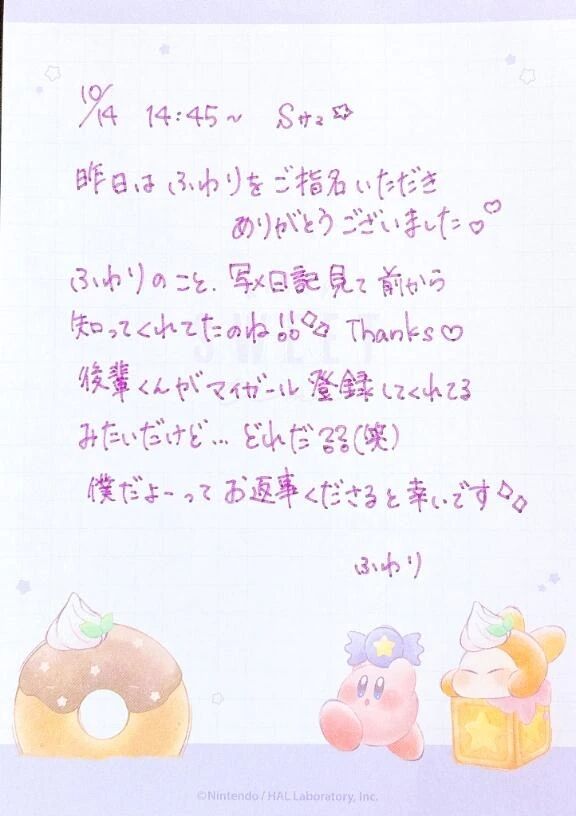 10/14 14:45～ Sサマ☆
昨日は ふわりを ご指名 いただき
ありがとうございました♡♡
ふわりのこと、写メ日記 見て 前から
知ってくれてたのね!! Thanks♡
SWEET
後輩くんが マイガール 登録してくれてる
みたいだけど… どれだ??(笑)
僕だよーって お返事くださると 幸いです
ふわり
©Nintendo / HAL Laboratory, Inc.